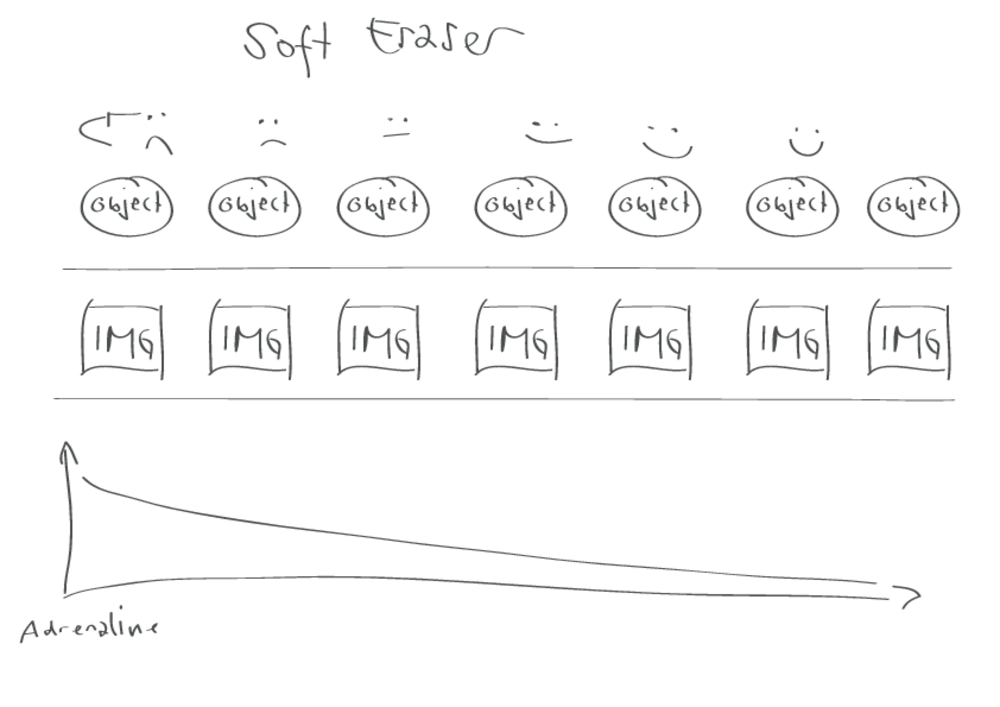 Soft Eraser
Object Object Object Object Object Object Object
IMG IMG IMG IMG IMG IMG IMG
Adrenaline